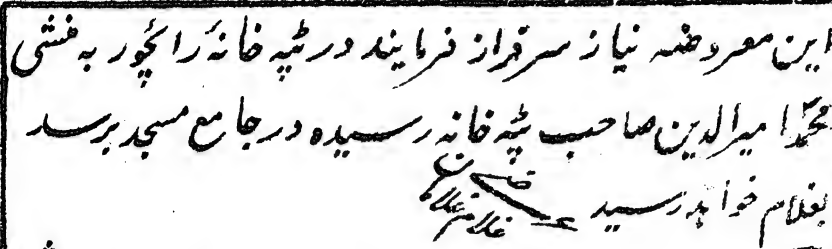 این معروضہ نیاز سرفراز فرمایند در ٹپہ خانۂ رائچور بہ منشی
محمد امیرالدین صاحب ٹپہ خانہ رسیدہ در جامع مسجد برسد
بغلام خواہد رسید